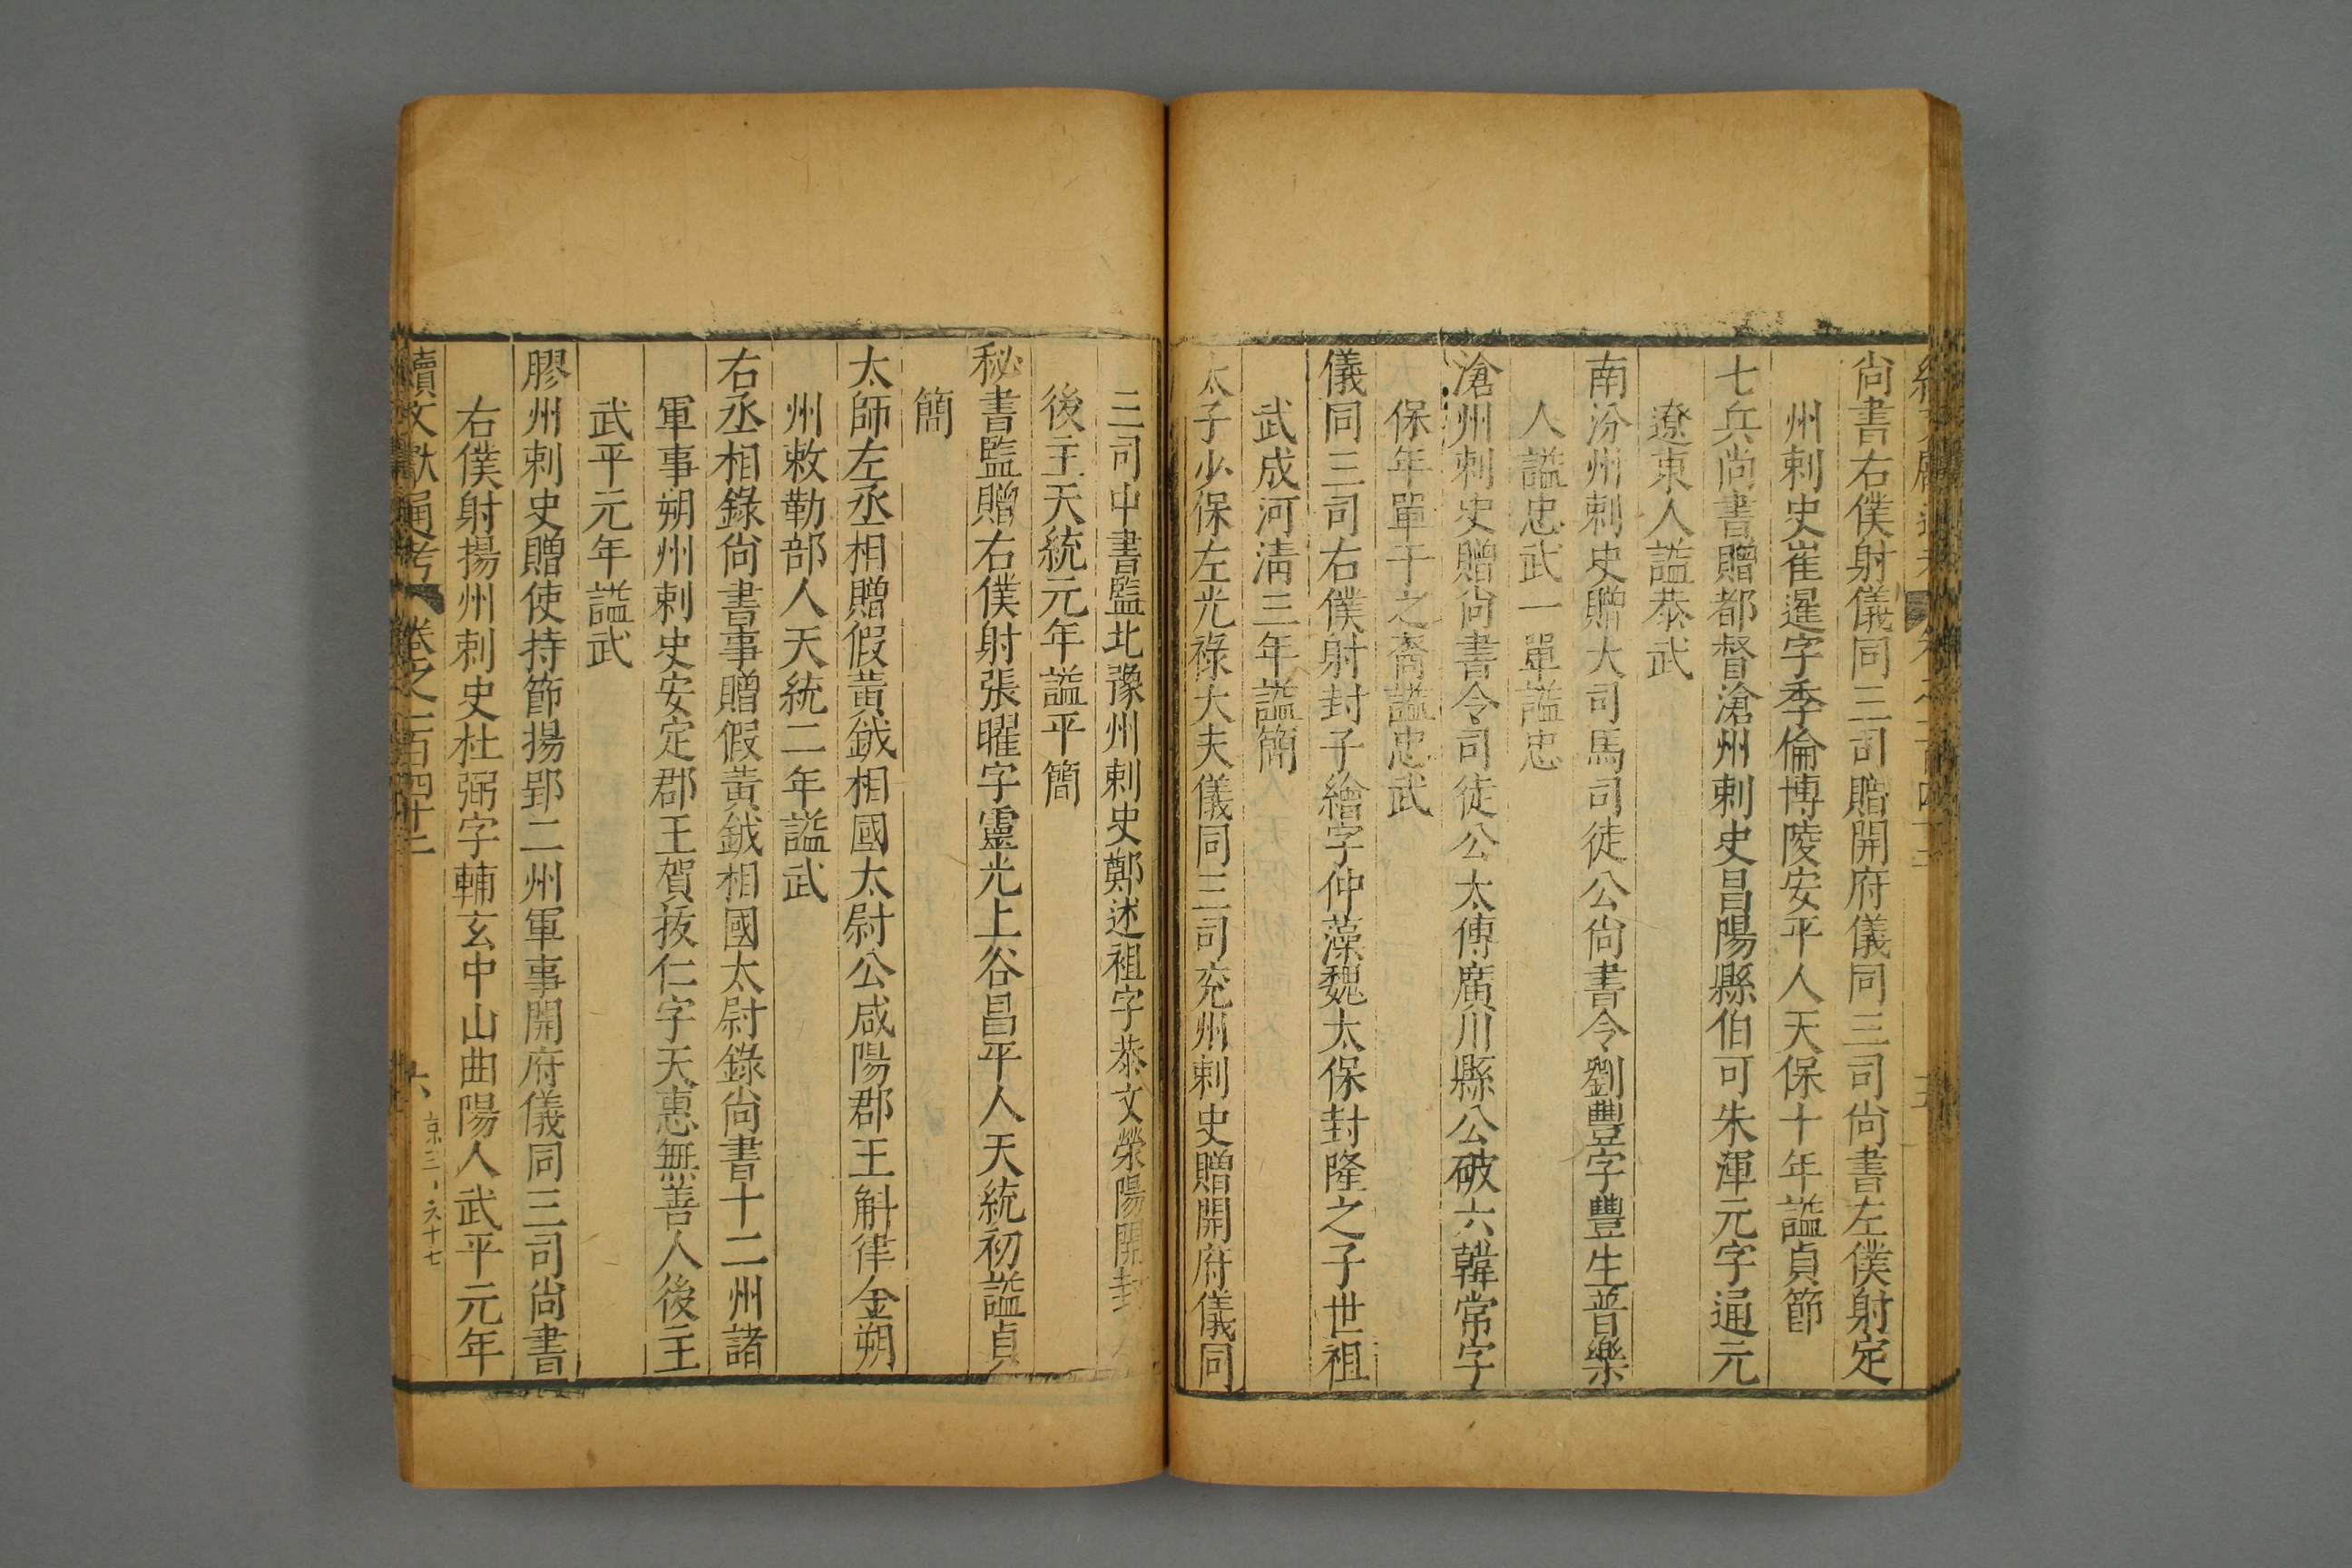 尚書右僕射儀同三司贈開府儀同三司尚書左僕射定
州刺史崔暹字季倫博陵安平人天保十年謚貞節
七兵尚書贈都督滄州刺史昌陽縣伯可朱渾元字通元
遼東人謚恭武
南汾州刺史贈大司馬司徒公尚書令劉豐字豐生普樂
人謚忠武一單謚忠
滄州刺史贈尚書令司徒公太傅廣川縣公破六韓常字
保年單于之裔謚忠武
儀同三司右僕射封子繪字仲藻魏太保封隆之子世祖
武成河清三年謚簡
太子少保左光祿大夫儀同三司兖州刺史贈開府儀同
三司中書監北豫州刺史鄭述祖字恭文滎陽開封人
後主天統元年謚平簡
秘書監贈右僕射張曜字靈光上谷昌平人天統初謚貞
簡
太師左丞相贈假黃鉞相國太尉公咸陽郡王斛律金朔
州敕勒部人天統二年謚武
右丞相錄尚書事贈假黃鉞相國太尉錄尚書十二州諸
軍事朔州刺史安定郡王賀拔仁字天惠無善人後主
武平元年謚武
膠州刺史贈使持節揚郢二州軍事開府儀同三司尚書
右僕射揚州刺史杜弼字輔玄中山曲陽人武平元年
續文獻通考 卷之一百四十二 六 京三、六十七